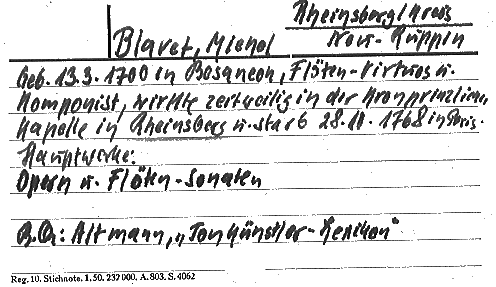 Rheinsberg/Kreis
Blavet, Michel Neu-Ruppin
Geb. 13.3.1700 in Besancon, Flöten-Virtuos u.
Komponist, wirkte zeitweilig in der Kronprinzlichen
Kapelle in Rheinsberg u. starb 28.10.1768 in Paris.
Hauptwerke:
Opern u. Flöten-Sonaten
B.Qu: Altmann, „Tonkünstler-Lexikon"
Reg. 10. Stichnote. 1. 50. 237000. A. 803. S. 4062